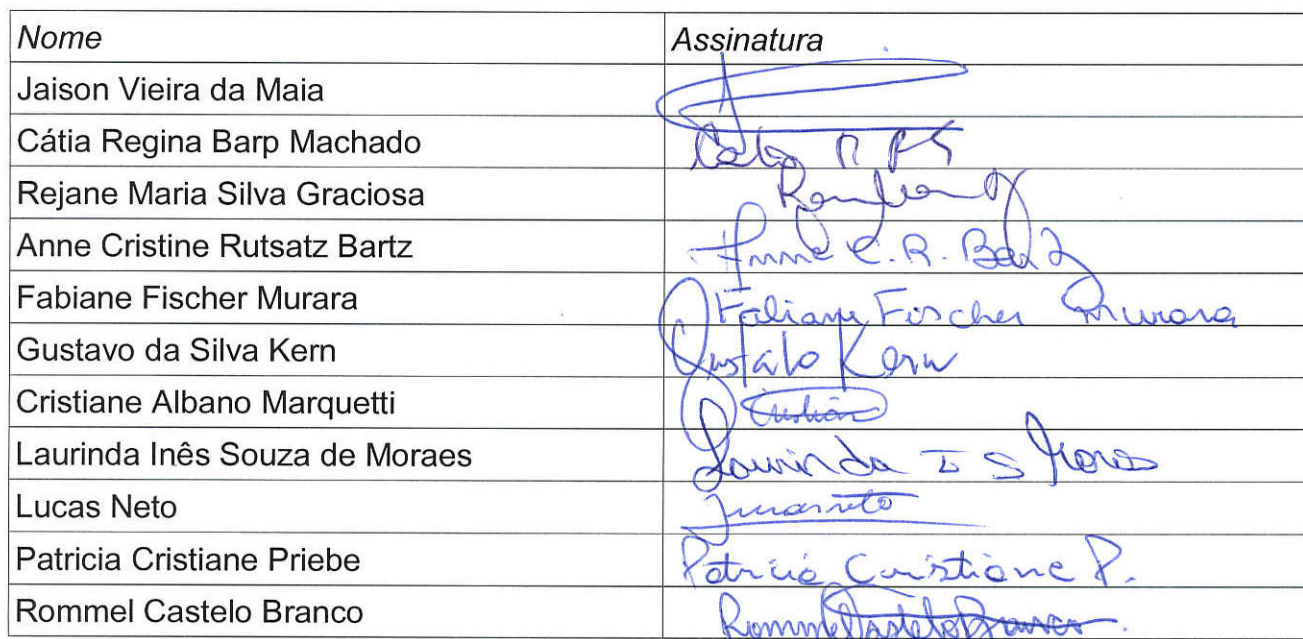 Nome Assinatura
Jaison Vieira da Maia
Cátia Regina Barp Machado
Rejane Maria Silva Graciosa
Anne Cristine Rutsatz Bartz Anne C.R. Bartz
Fabiane Fischer Murara Fabiane Fischer Murara
Gustavo da Silva Kern Gustavo Kern
Cristiane Albano Marquetti
Laurinda Inês Souza de Moraes Laurinda I S Moraes
Lucas Neto
Patricia Cristiane Priebe Patricia Cristiane P.
Rommel Castelo Branco Rommel Castelo Branco